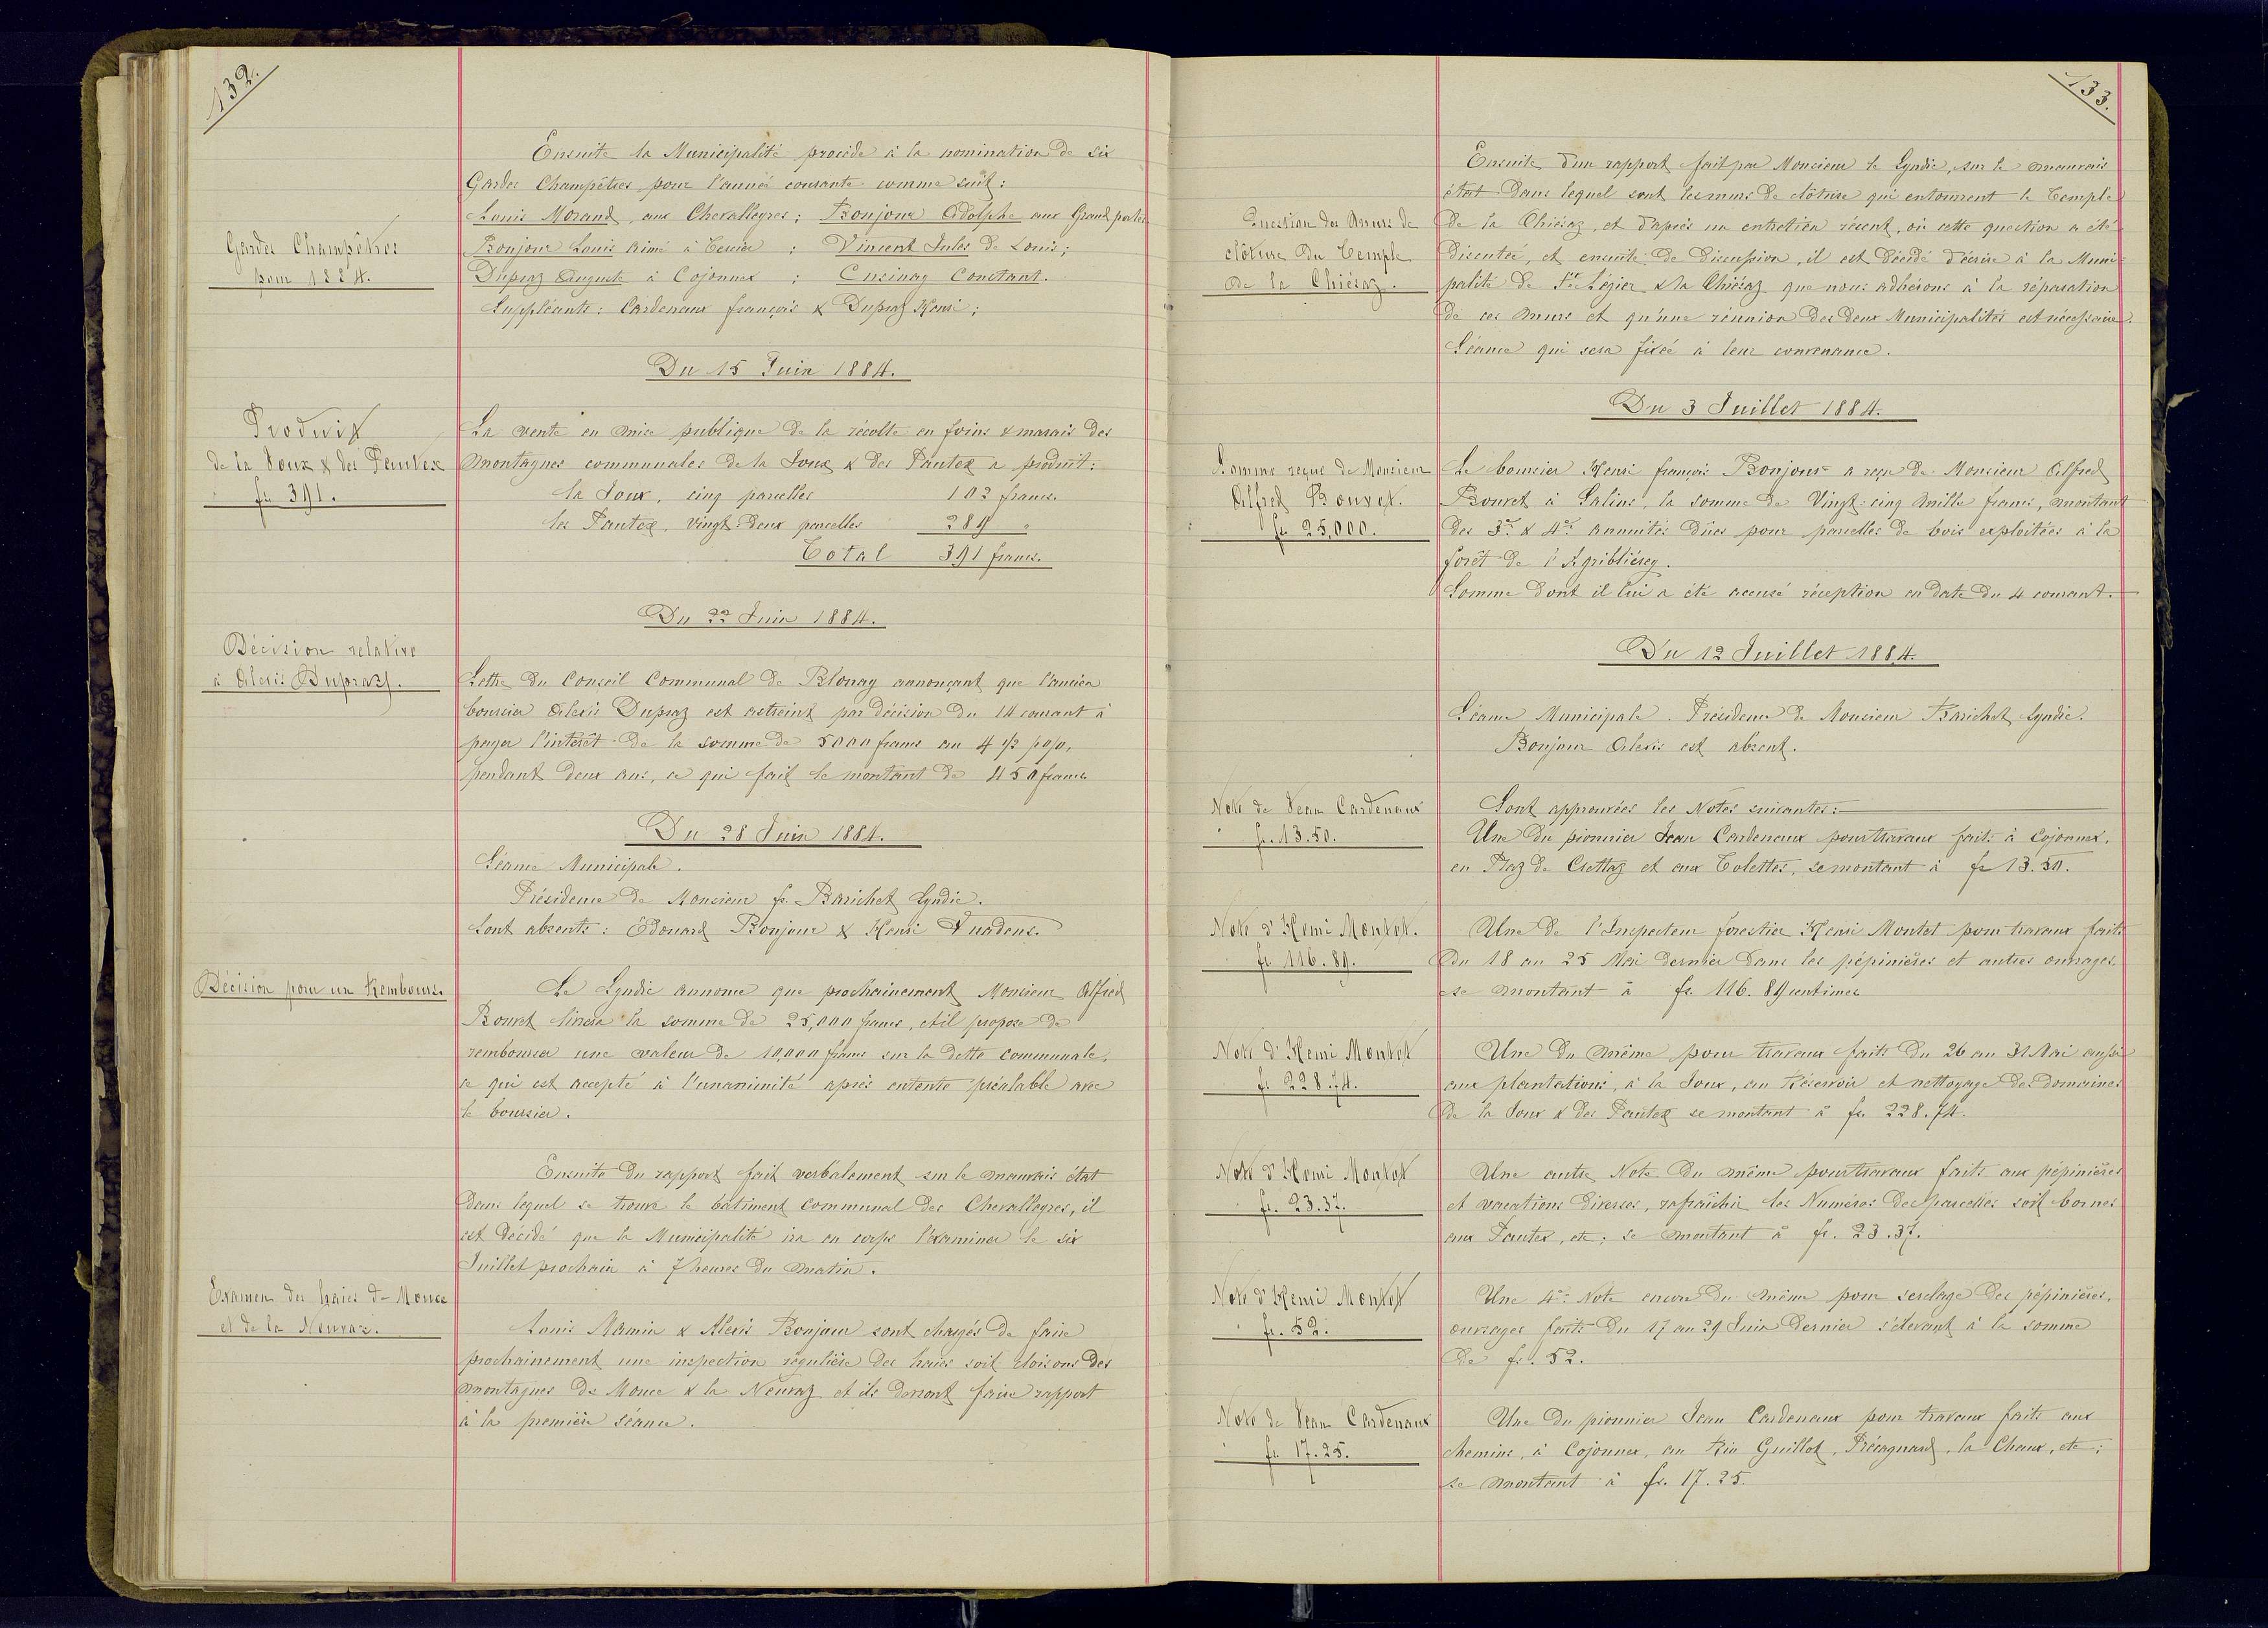 132.
Ensuite la Municipalité procède à la nomination de six
Gardes Champêtres pour l'année courante comme suit:
Louis Morand, aux Chevalleyres; Bonjour Adolphe aux Grand portes
Gardes Champêtres
pour 1884.
Bonjour Louis Aimé à Tercier : Vincent Jules de Louis;
Dupraz Auguste à Cojonnex ; Cusinay Constant.
Suppléants: Cardenaux françois & Dupraz Henri;
Du 15 Juin 1884.
Produit
de la Joux & des Pautex
fr. 391.
La vente en mise publique de la récolte en foins & marais des
montagnes communales de la Joux & des Pautex a produit:
la Joux, cinq parcelles 102 francs.
les Pautex, vingt-deux parcelles 289 "
Total 391 francs.
Du 22 Juin 1884.
Décision relative
à Alexis Dupraz.
Lettre du Conseil Communal de Blonay annonçant que l'ancien
boursier Alexis Dupraz est astreint par décision du 14 courant à
payer l'intérêt de la somme de 5000 francs au 4 1/2 p%,
pendant deux ans, ce qui fait le montant de 450 francs
Du 28 Juin 1884.
Séance Municipale.
Présidence de Monsieur fs. Barichet Syndic.
Sont absents: Edouard Bonjour & Henri Vuadens.
Décision pour un Rembours.
Le Syndic annonce que prochainement Monsieur Alfred
Bouvet livrera la somme de 25,000 francs, et il propose de
rembourser une valeur de 10,000 francs sur la dette communale,
ce qui est accepté à l'unanimité après entente préalable avec
le boursier.
Ensuite du rapport fait verbalement sur le mauvais état
dans lequel se trouve le bâtiment communal des Chevalleyres, il
est décidé que la Municipalité ira en corps l'examiner le six
Juillet prochain à 7 heures du matin.
Examen des haies de Mouce
et de la Neuvaz.
Louis Mamin & Alexis Bonjour sont chargés de faire
prochainement une inspection régulière des haies soit cloisons des
montagnes de Mouce & la Neuvaz et ils devront faire rapport
à la première séance.
133.
Ensuite d'un rapport fait par Monsieur le Syndic, sur le mauvais
état dans lequel sont les murs de clôture qui entourent le Temple
Question des Murs de
clôture du Temple
de la Chiésaz.
de la Chiésaz, et d'après un entretien récent, où cette question a été
discutée, et ensuite de discussion, il est décidé d'écrire à la Muni-
palité de St Légier & la Chiésaz que nous adhérons à la réparation
de ces murs et qu'une réunion des deux Municipalités est nécessaire.
Séance qui sera fixée à leur convenance.
Du 3 Juillet 1884.
Somme reçue de Monsieur
Alfred Bouvet.
fr. 25,000.
Le boursier Henri françois Bonjour a reçu de Monsieur Alfred
Bouvet à Salins, la somme de Vingt-cinq mille francs, montant
des 3me & 4me annuités dues pour parcelles de bois exploitées à la
forêt de
Somme dont il lui a été accusé réception en date du 4 courant.
Du 12 Juillet 1884.
Séance Municipale. Présidence de Monsieur Barichet Syndic.
Bonjour Alexis est absent.
Sont approuvées les Notes suivantes:
Note de Jean Cardenaux
fr. 13.50.
Une du pionnier Jean Cardenaux pour travaux faits à Cojonnex,
en Plaz de Crottaz et aux Tolettes, se montant à fr 13.50.
Note d'Henri Montet.
fr. 116.89.
Une de l'Inspecteur forestier Henri Montet pour travaux faits
du 18 au 25 Mai dernier dans les pépinières et autres ouvrages.
se montant à fr. 116.89 centimes
Note d'Henri Montet
fr. 228.74.
Une du même pour travaux faits du 26 au 31 Mai aussi
aux plantations, à la Joux, au Réservoir et nettoyage des Domaines
de la Joux & des Pautex se montant à fr. 228.74.
Note d'Henri Montet
fr. 23.37.
Une autre Note du même pour travaux faits aux pépinières
et vacations diverses, rafraîchir les Numéros des parcelles soit bornes
aux Pautex, etc; se montant à fr. 23.37.
Note d'Henri Montet
fr. 52.
Une 4me Note encore du même pour serclage des pépinières,
ouvrages faits du 17 au 29 Juin dernier s'élevant à la somme
de fr. 52.
Note de Jean Cardenaux
fr. 17.25.
Une du pionnier Jean Cardenaux pour travaux faits aux
chemins, à Cojonnex, au Riu Guillot, la Chaux, etc;
se montant à fr. 17.25.